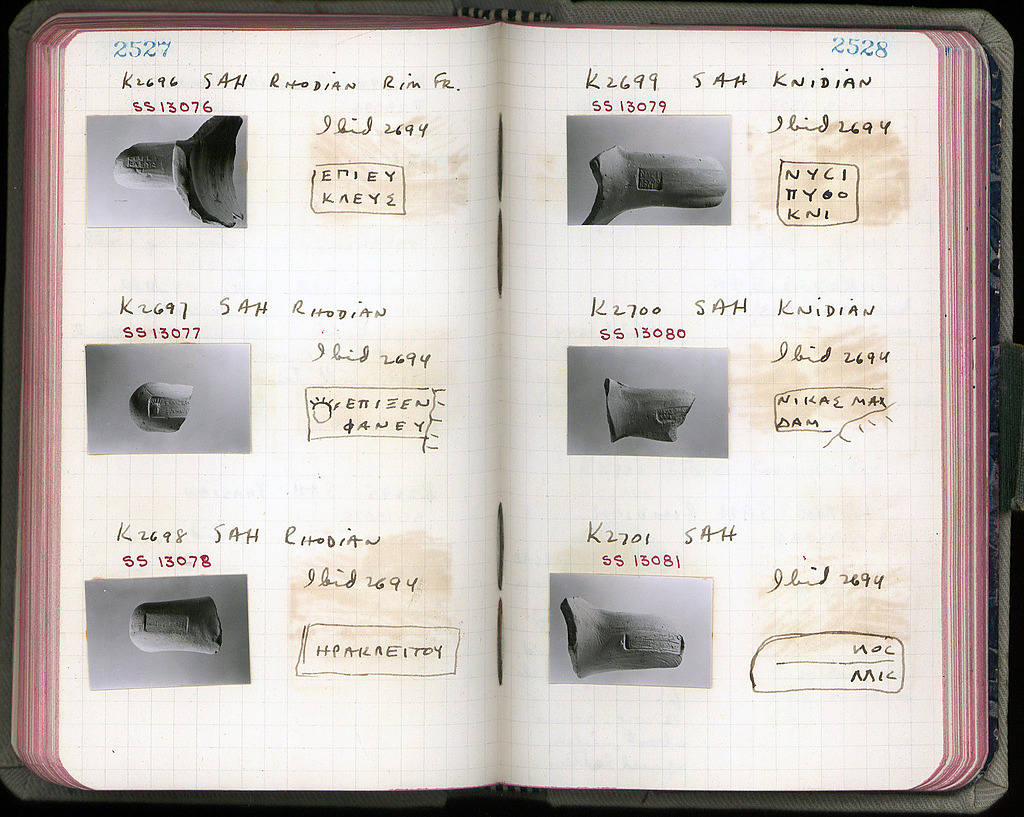 2527
K2696 SAH RHODIAN RIM FR.
SS 13076
Ibid 2694
ΕΠΙΕΥ
ΚΛΕΥΣ
K2697 SAH RHODIAN
SS 13077
Ibid 2694
ΕΠΙΞΕΝ
ΦΑΝΕΥ
K2698 SAH RHODIAN
SS 13078
Ibid 2694
ΗΡΑΚΛΕΙΤΟΥ
2528
K2699 SAH KNIDIAN
SS 13079
Ibid 2694
ΝΥCΙ
ΠΥΘΟ
ΚΝΙ
K2700 SAH KNIDIAN
SS 13080
Ibid 2694
ΝΙΚΑΣ ΜΑΧ
ΔΑΜ
K2701 SAH
SS 13081
Ibid 2694
ΠΟC
ΜΙΚ